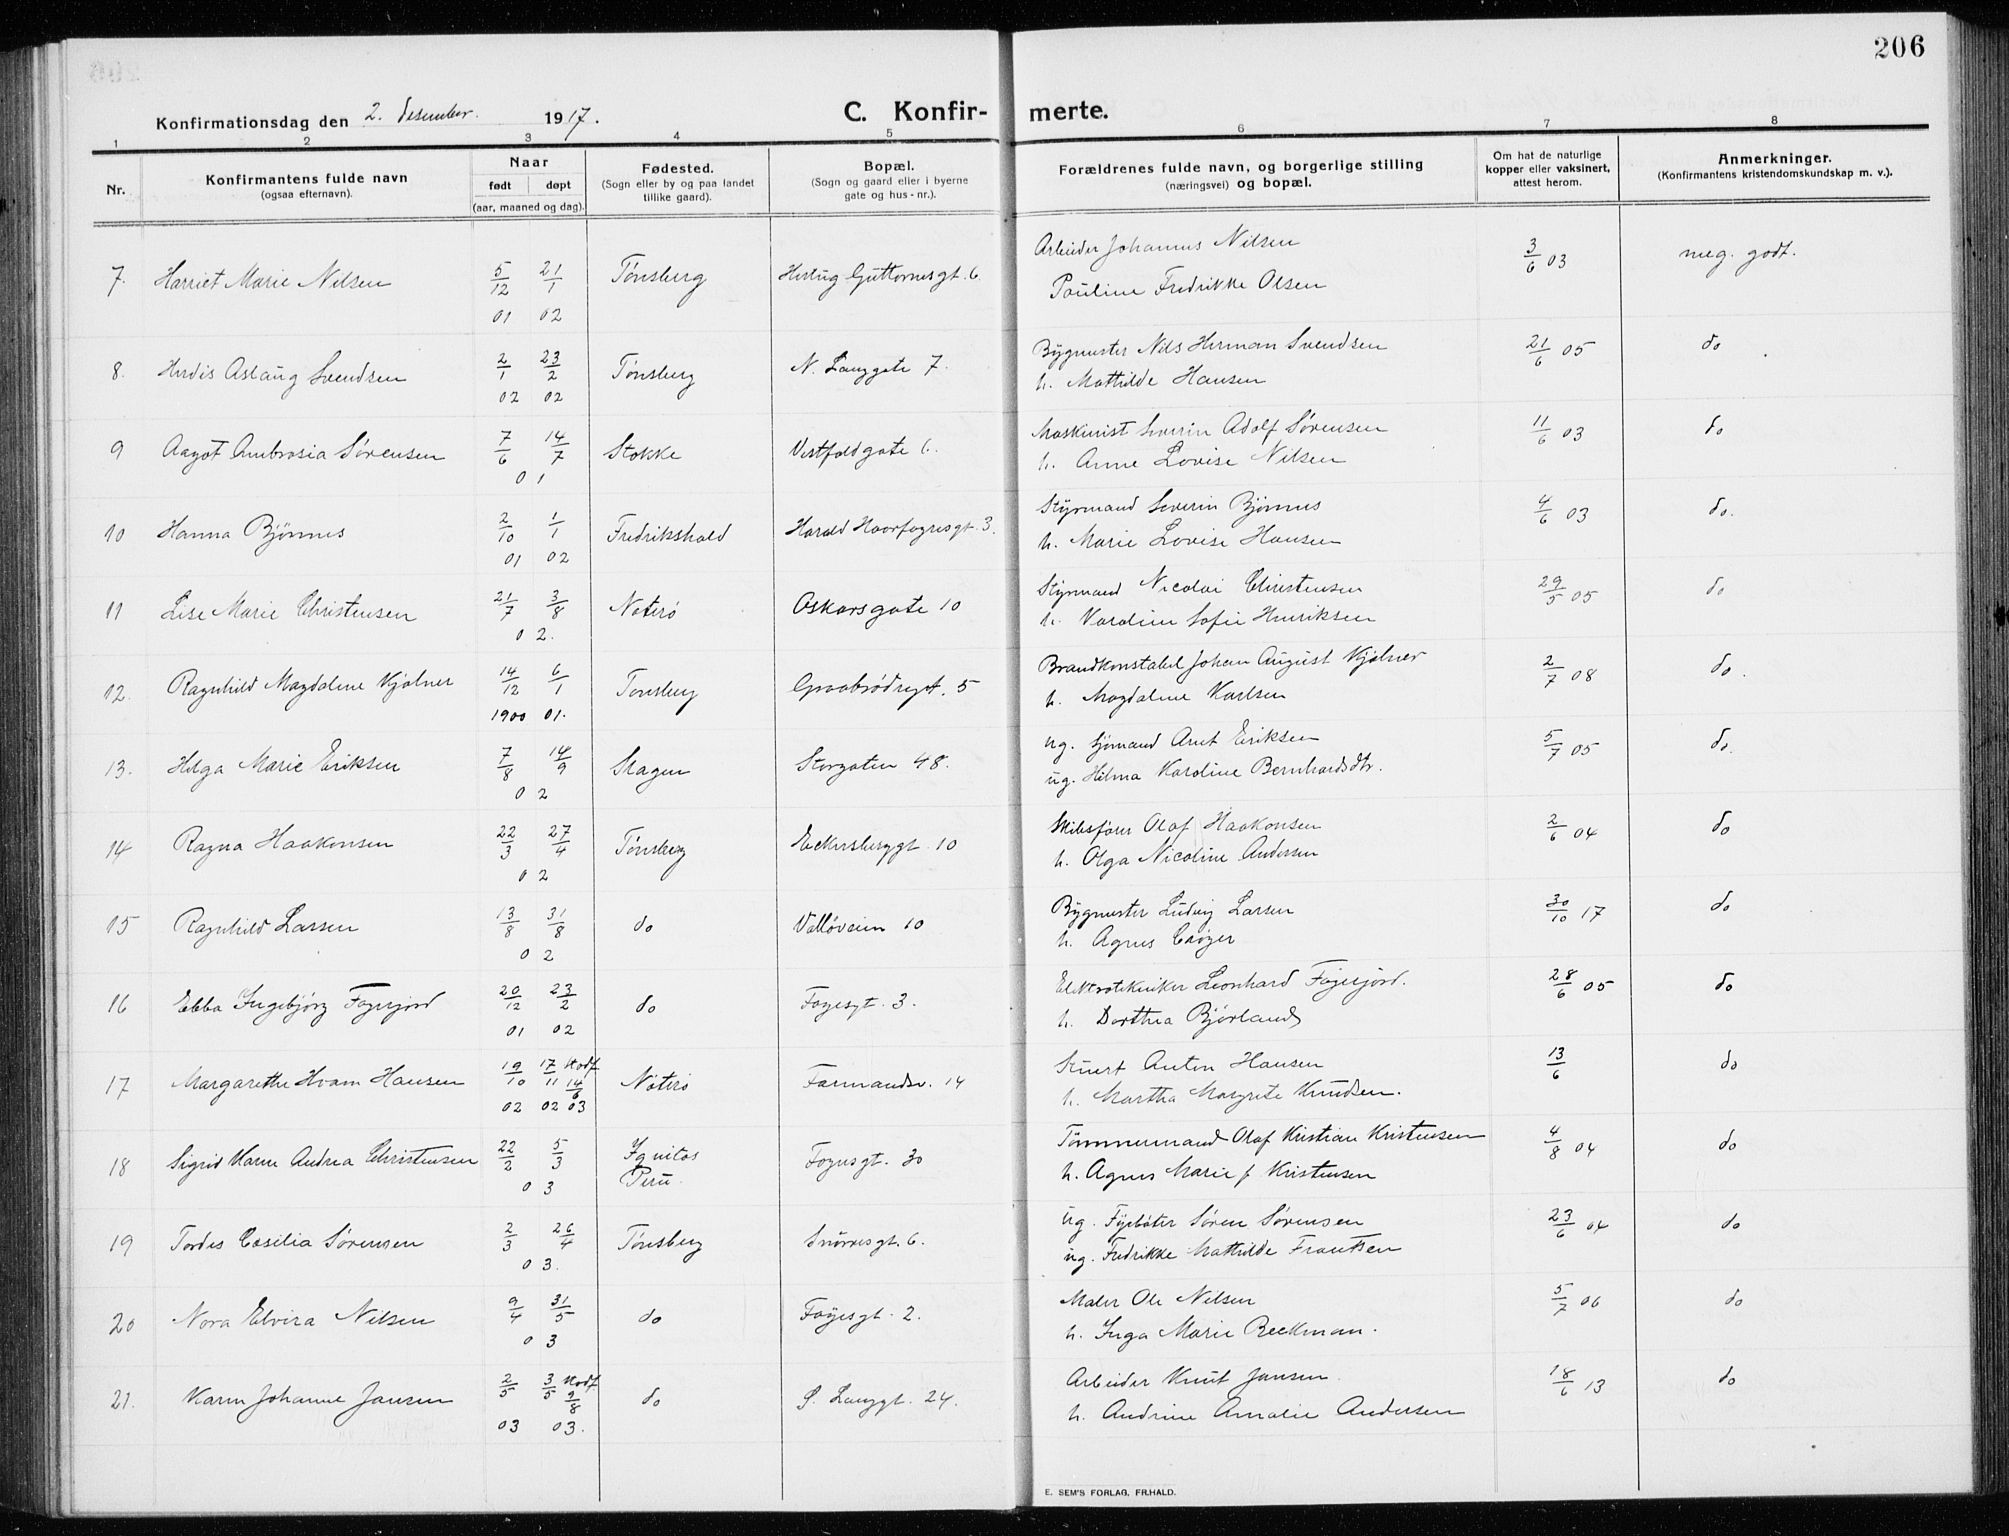 206
Konfirmationsdag den 2. desember. 1917.
C. Konfir- merte.
1 2 3 4 5 6 7 8
Nr.
Konfirmantens fulde navn
(ogsaa efternavn).
Naar
født døpt
(aar, maaned og dag).
Fødested.
(Sogn eller by og paa landet
tillike gaard).
Bopæl.
(Sogn og gaard eller i byerne
gate og hus-nr.).
Forældrenes fulde navn, og borgerlige stilling
(næringsvei) og bopæl.
Om hat de naturlige
kopper eller vaksinert,
attest herom.
Anmerkninger.
(Konfirmantens kristendomskundskap m. v.).
7. Harriet Marie Nilsen 5/12 01 21/1 02 Tønsberg Hertug Guttormsgt. 6 Arbeider Johannes Nilsen 3/6 03 meg. godt.
Pauline Fredrikke Olsen
8. Herdis Aslaug Svendsen 2/1 02 23/2 02 Tønsberg N. Langgate 7. Bygmester Nils Herman Svendsen 21/6 05 do
h. Mathilde Hansen
9 Aagot Ambrosia Sørensen 7/6 14/7 01 Stokke Vestfoldgate 6. Maskinist Severin Adolf Sørensen 11/6 03 do
h. Anne Lovise Nilsen
10 Hanna Bjönnes 2/10 01 1/1 02 Fredrikshald Harald Haarfagresgt. 3. Styrmand Severin Bjönnes 4/6 03 do.
h. Marie Lovise Hansen
11 Lise Marie Christensen 21/7 3/8 02. Nøterø Oskarsgate 10 Styrmand Nicolai Christensen 29/5 05 do
h. Karoline Sofie Henriksen
12. Ragnhild Magdalene Kjølner 14/12 1900 6/1 01. Tønsberg Graabrødregt. 5 Brandkonstabel Johan August Kjølner 2/7 08 do.
h. Magdalene Karlsen
13. Helga Marie Eriksen 7/8 14/9 02 Skagen Storgaten 48. ug. Sjømand Arnt Eriksen 5/7 05 do.
ug. Hilma Karoline Bernhardsdtr.
14 Ragna Haakonsen 22/3 27/4 02 Tønsberg Eckersberggt. 10 Skibsfører Olaf Haakonsen 2/6 04 do
h. Olga Nicoline Andersen
15 Ragnhild Larsen 13/8 31/8 02 do Valløveien 10 Bygmester Ludvig Larsen 30/10 17 do
h. Agnes Crøger
16 Ebba Ingebjørg Fagerjord 20/12 01 23/2 02 do Fayesgt. 3. Elektrotekniker Leonhard Fagerjord. 28/6 05 do
h. Dorthea Bjørland
17 Margarethe Hvam Hansen 19/10 02 17/11 02 stadf 14/6 03 Nøterø Farmandsv. 14 Stuert Anton Hansen 13/6 do
h. Martha Margrete Knudsen.
18 Sigrid Karen Andrea Christensen 22/2 5/3 03 Iquitos Peru. Fayesgt. 30 Tömmermand Olaf Kristian Kristensen 4/8 04 do
h. Agnes Marie f Kristensen
19 Tordis Cæsilia Sørensen 2/3 26/4 03. Tønsberg Snorresgt. 6. ug. Fyrbøter Søren Sørensen 23/6 04 do
ug. Fredrikke Mathilde Frantsen
20 Nora Elvira Nilsen 9/4 31/5 03 do Fayesgt. 2. Maler Ole Nilsen 5/7 06 do
h. Inga Marie Beckman.
21. Karen Johanne Jansen 2/5 03 3/5 stadf 9/8 03. do S. Langgt. 24. Arbeider Knut Jansen. 18/6 13 do
h. Andrine Amalie Andersen
E. SEM'S FORLAG, FR.HALD.